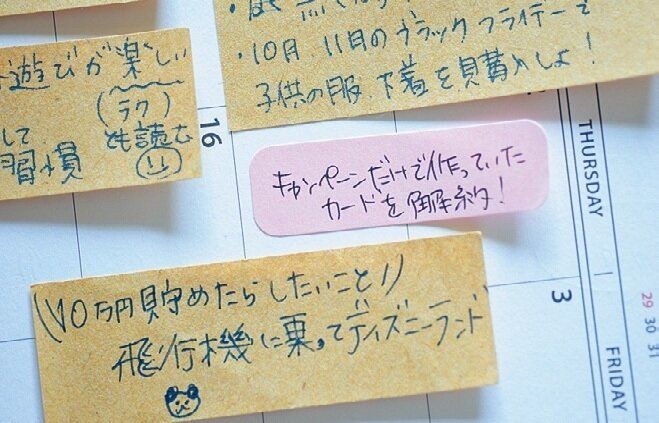 ・10月、11月のブラックフライデーで
子供の服、下着を買いましょ!
遊びが楽しい
(ラク)
して
習慣 とも読む
16
キャンペーンだけで作っていた
カードを解約!
THURSDAY
\\10万円貯めたらしたいこと//
飛行機に乗ってディズニーランド
3
29
30
31
FRIDAY